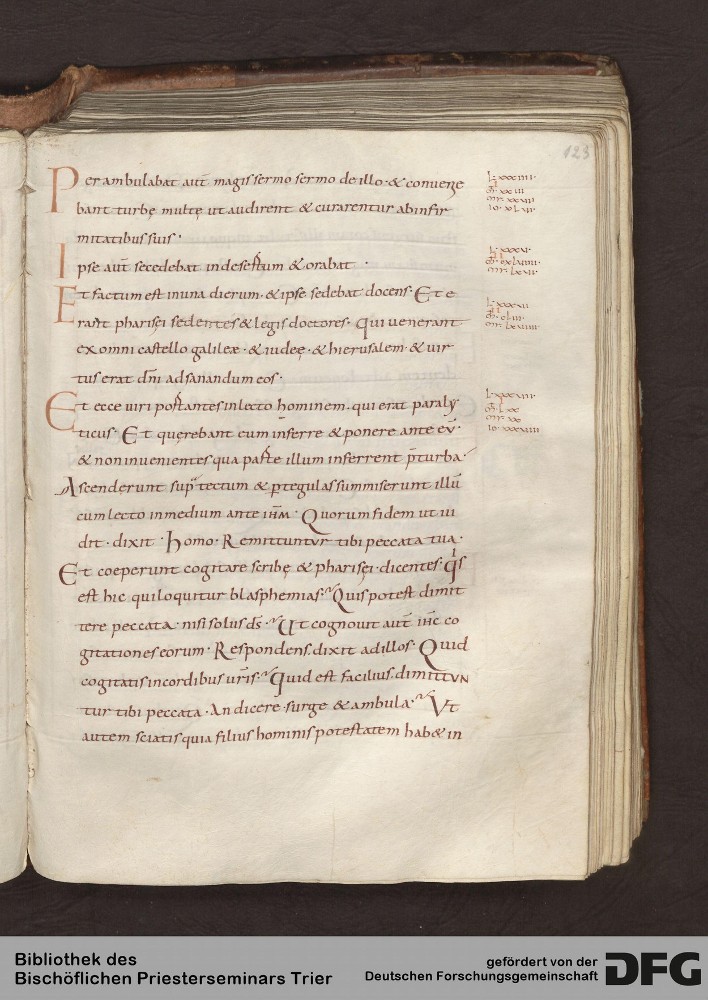 123
Per ambulabat aut̄ magis sermo sermo de illo · & conuene
bant turbę multę ut audirent & curarentur ab infir
mitatibus suis ·
Ipse aut̄ secedebat in desertum & orabat ·
Et factum est in una dierum · & ipse sedebat docens · Et e
rant pharisęi sedentes & legis doctores · Qui uenerant
ex omni castello galileæ · & iudeę · & hierusalem · & uir
tus erat dn̄i ad sanandum eos ·
Et ecce uiri portantes in lecto hominem · qui erat paraly
ticus · Et quęrebant eum inferre & ponere ante eū ·
& non inuenientes qua parte illum inferrent p̄ turba ·
Ascenderunt sup̄ tectum & p tegulas summiserunt illū
cum lecto in medium ante ih̄m · Quorum fidem ut ui
dit · dixit · Homo · Remittuntur tibi peccata tua ·
Et coeperunt cogitare scribę & pharisęi · dicentes · qis
est hic qui loquitur blasphemias · Quis potest dimit
tere peccata · nisi solus ds̄ · Ut cognouit aut̄ ih̄c co
gitationes eorum · Respondens · dixit ad illos · Quid
cogitatis in cordibus ur̄is · Quid est facilius · dimittun
tur tibi peccata · An dicere · surge & ambula · Ut
autem sciatis quia filius hominis potestatem hab& in
Bibliothek des
Bischöflichen Priesterseminars Trier
gefördert von der
Deutschen Forschungsgemeinschaft
DFG